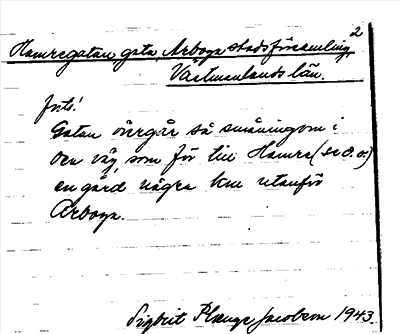 2
Hamregatan gata, Arboga stadsförsamling,
Västmanlands län.
Gatan övergår så småningom i
den väg, som för till Hamre (se d. o.)
en gård några km utanför
Arboga.
Sigbrit Plænge Jacobson 1943